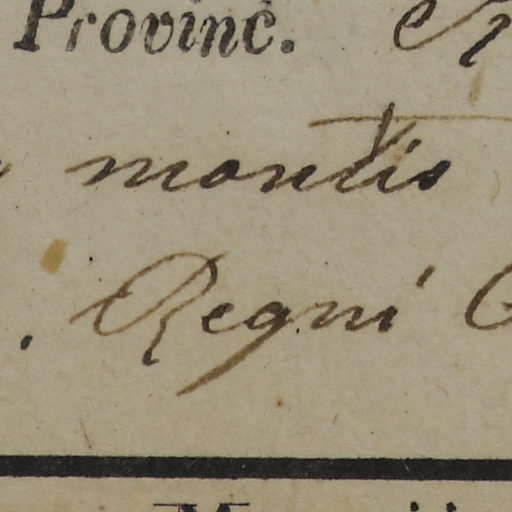 Provinc.
montis
. Regni